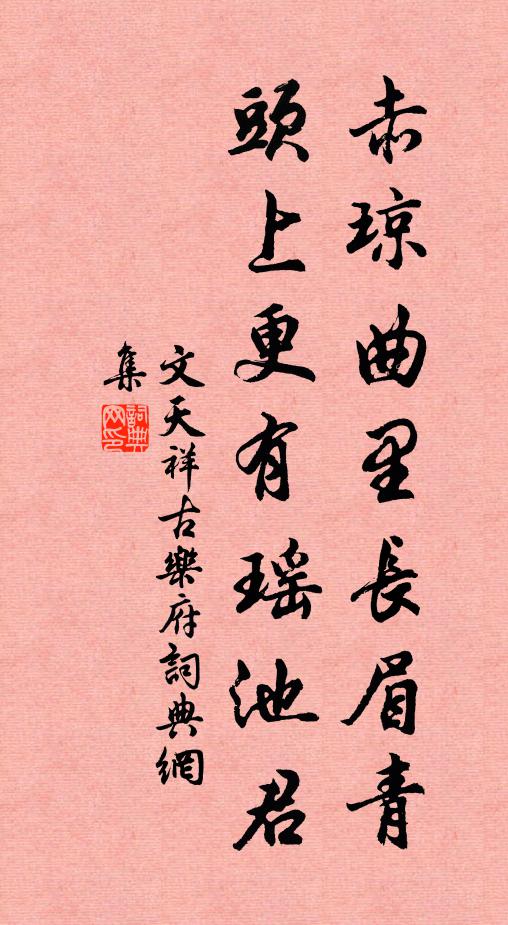 赤琼曲里長眉青
頭上更有瑶池君
文天祥古樂府詞典網
集
詞典网印